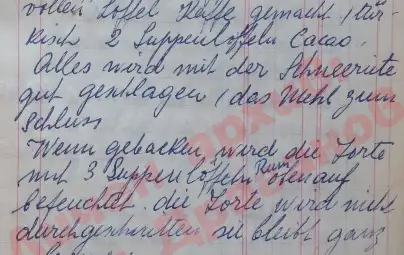 vollen Löffel Kaffe gemacht / tür-
kisch 2 Suppenlöffeln Cacao.
Alles wird mit der Schneerute
gut geschlagen / das Mehl zum
Schluss
Wenn gebacken, wird die Torte
mit 3 Suppenlöffeln Rum obenauf
befeuchtet. die Torte wird nicht
durchgeschnitten sie bleibt ganz